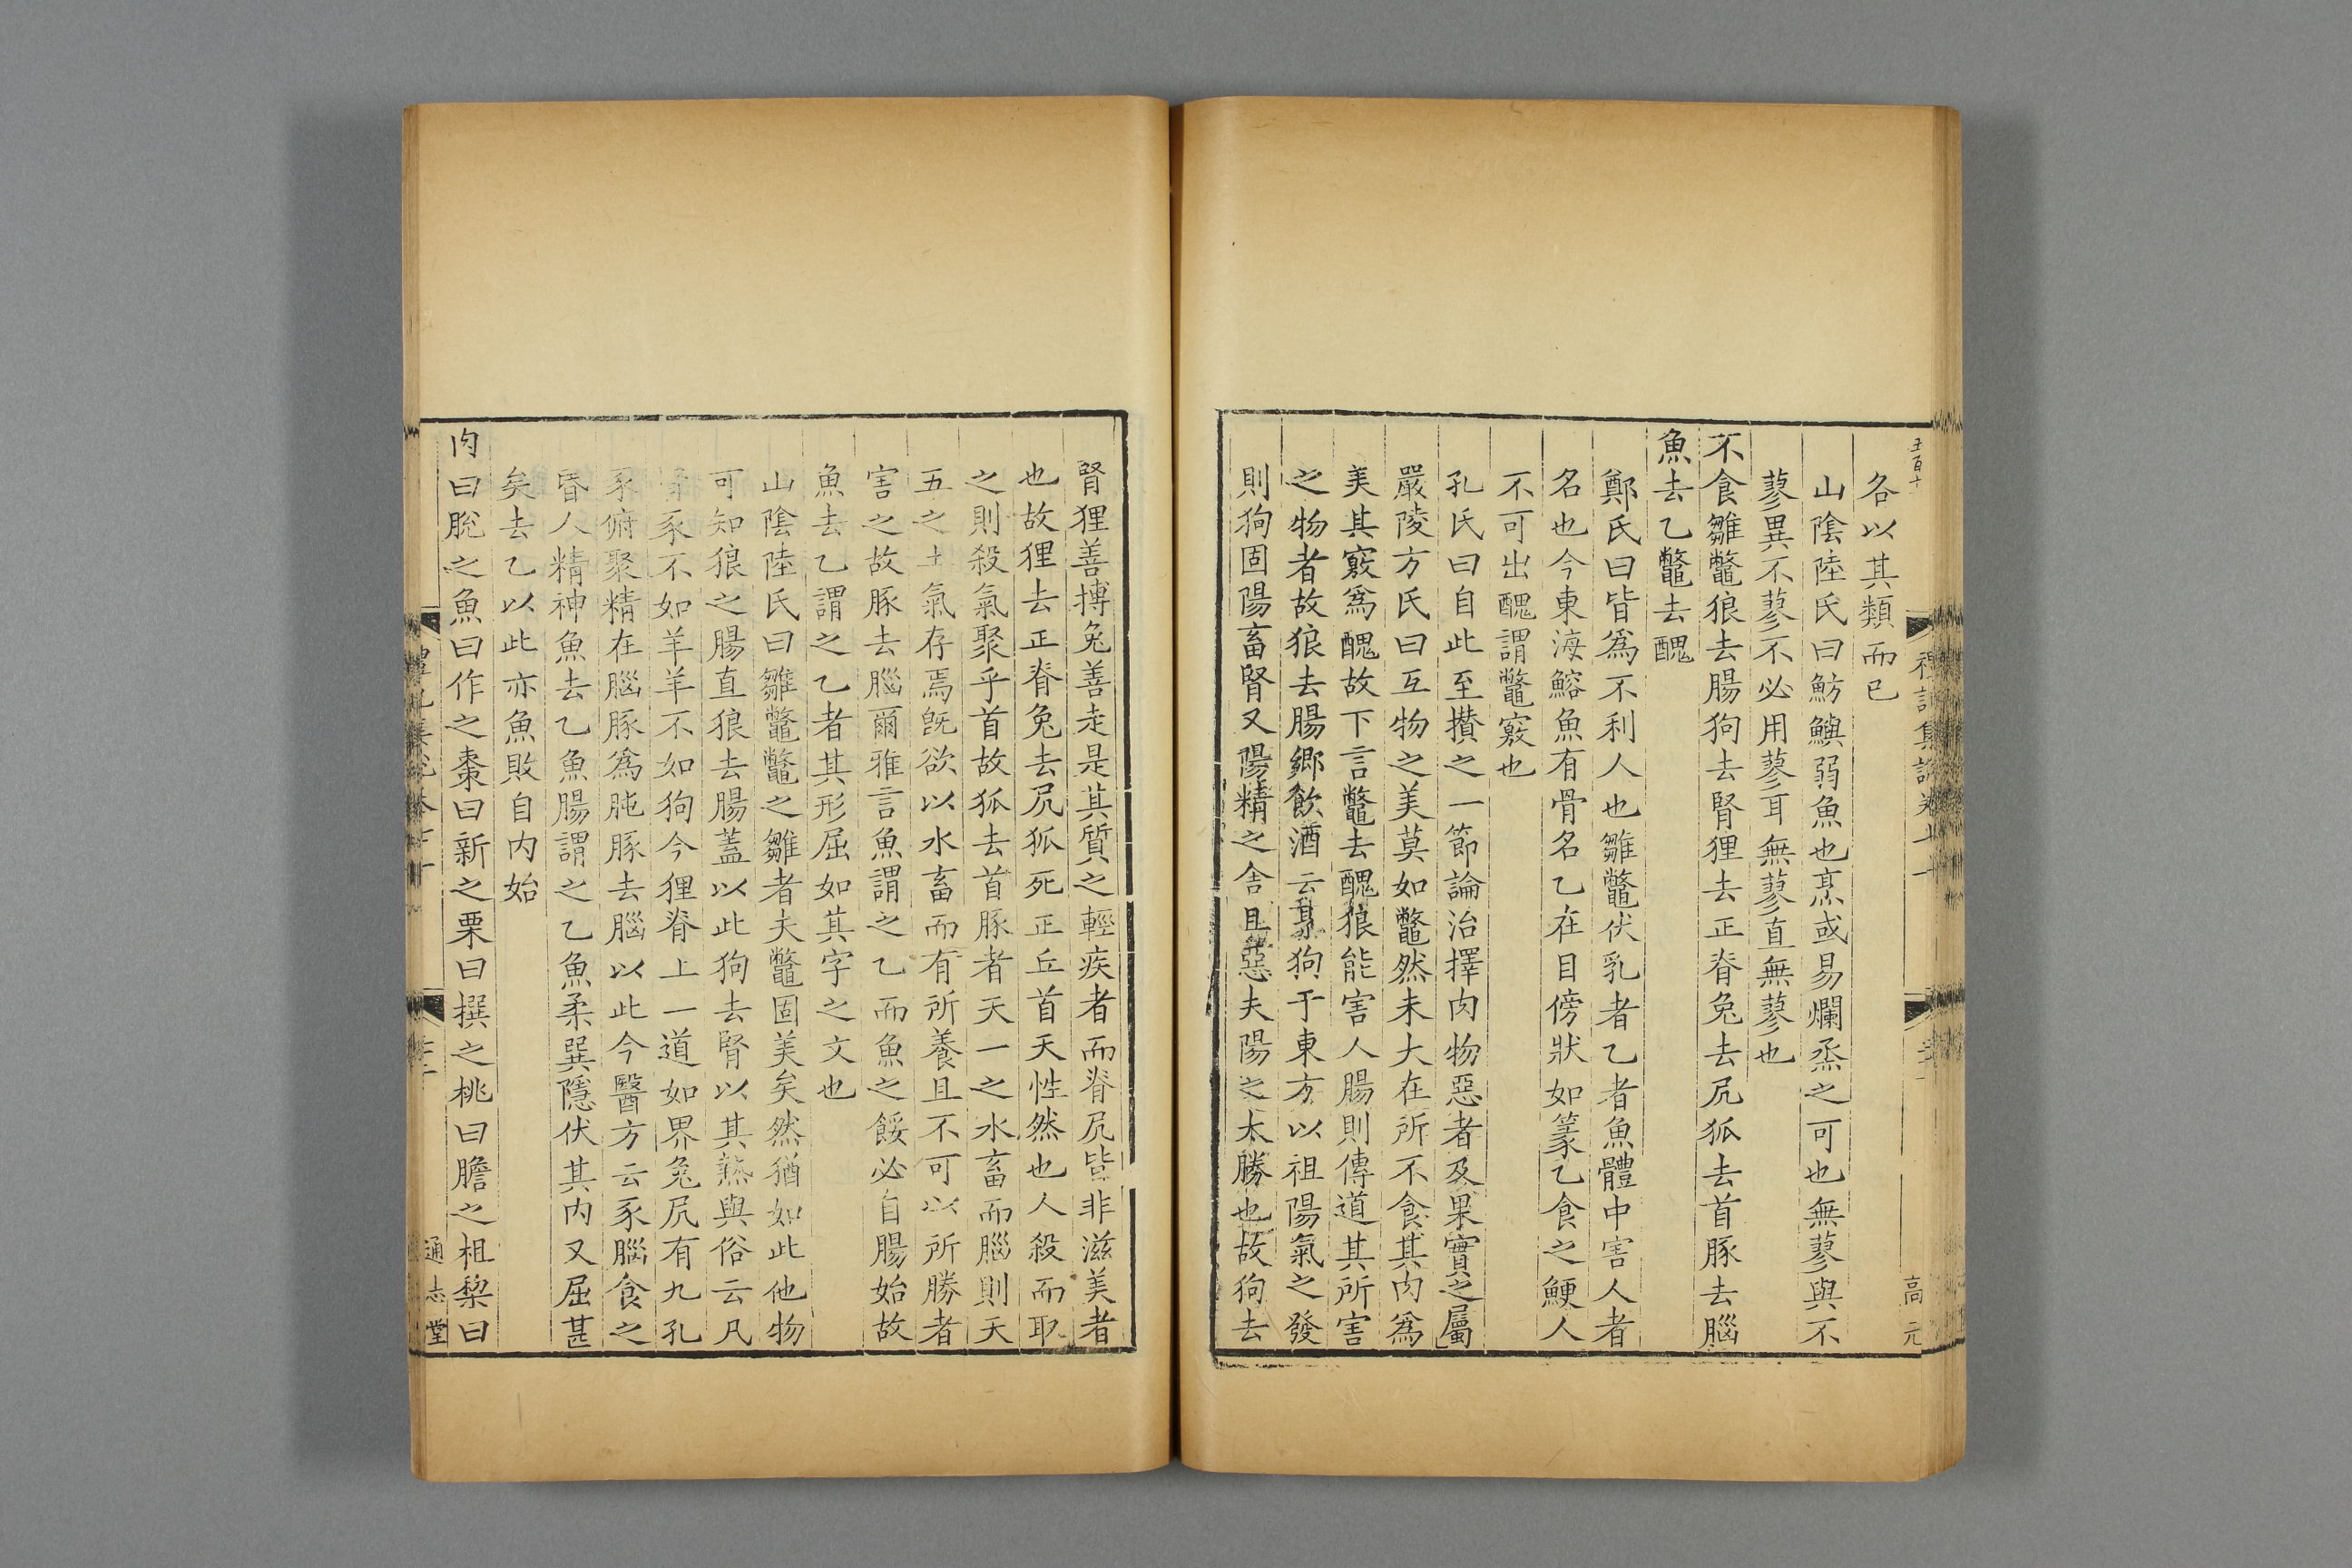 各以其類而已
山陰陸氏曰魴鱮弱魚也烝或易爛烝之可也無蓼與不
蓼異不蓼不必用蓼耳無蓼直無蓼也
不食雛鼈狼去腸狗去腎狸去正脊兔去尻狐去首豚去腦
魚去乙鼈去醜
鄭氏曰皆爲不利人也雛鼈伏乳者乙者魚體中害人者
名也今東海鰫魚有骨名乙在目傍狀如篆乙食之鯁人
不可出醜謂鼈竅也
孔氏曰自此至攢之一節論治擇肉物惡者及果實之屬
嚴陵方氏曰互物之美莫如鼈然未大在所不食其肉爲
美其竅爲醜故下言鼈去醜狼能害人腸則傳道其所害
之物者故狼去腸鄉飲酒云烹狗于東方以祖陽氣之發
則狗固陽畜腎又陽精之舎且惡夫陽之太勝也故狗去
高元
腎狸善搏兔善走是其質之輕疾者而脊尻皆非滋美者
也故狸去正脊兔去尻狐死正丘首天性然也人殺而取
之則殺氣聚乎首故狐去首豚者天一之水畜而腦則天
五之土氣存焉旣欲以水畜而有所養且不可以所勝者
害之故豚去腦爾雅言魚謂之乙而魚之餒必自腸始故
魚去乙謂之乙者其形屈如其字之文也
山陰陸氏曰雛鼈鼈之雛者夫鼈固美矣然猶如此他物
可知狼之腸直狼去腸蓋以此狗去腎以其熱與俗云凡
豕不如羊羊不如狗今狸脊上一道如界兔尻有九孔
豕俯聚精在腦豚爲肫豚去腦以此今醫方云豕腦食之
昏人精神魚去乙魚腸謂之乙魚柔巽隱伏其内又屈甚
矣去乙以此亦魚敗自内始
肉曰脫之魚曰作之棗曰新之栗曰撰之桃曰膽之柤棃曰
通志堂